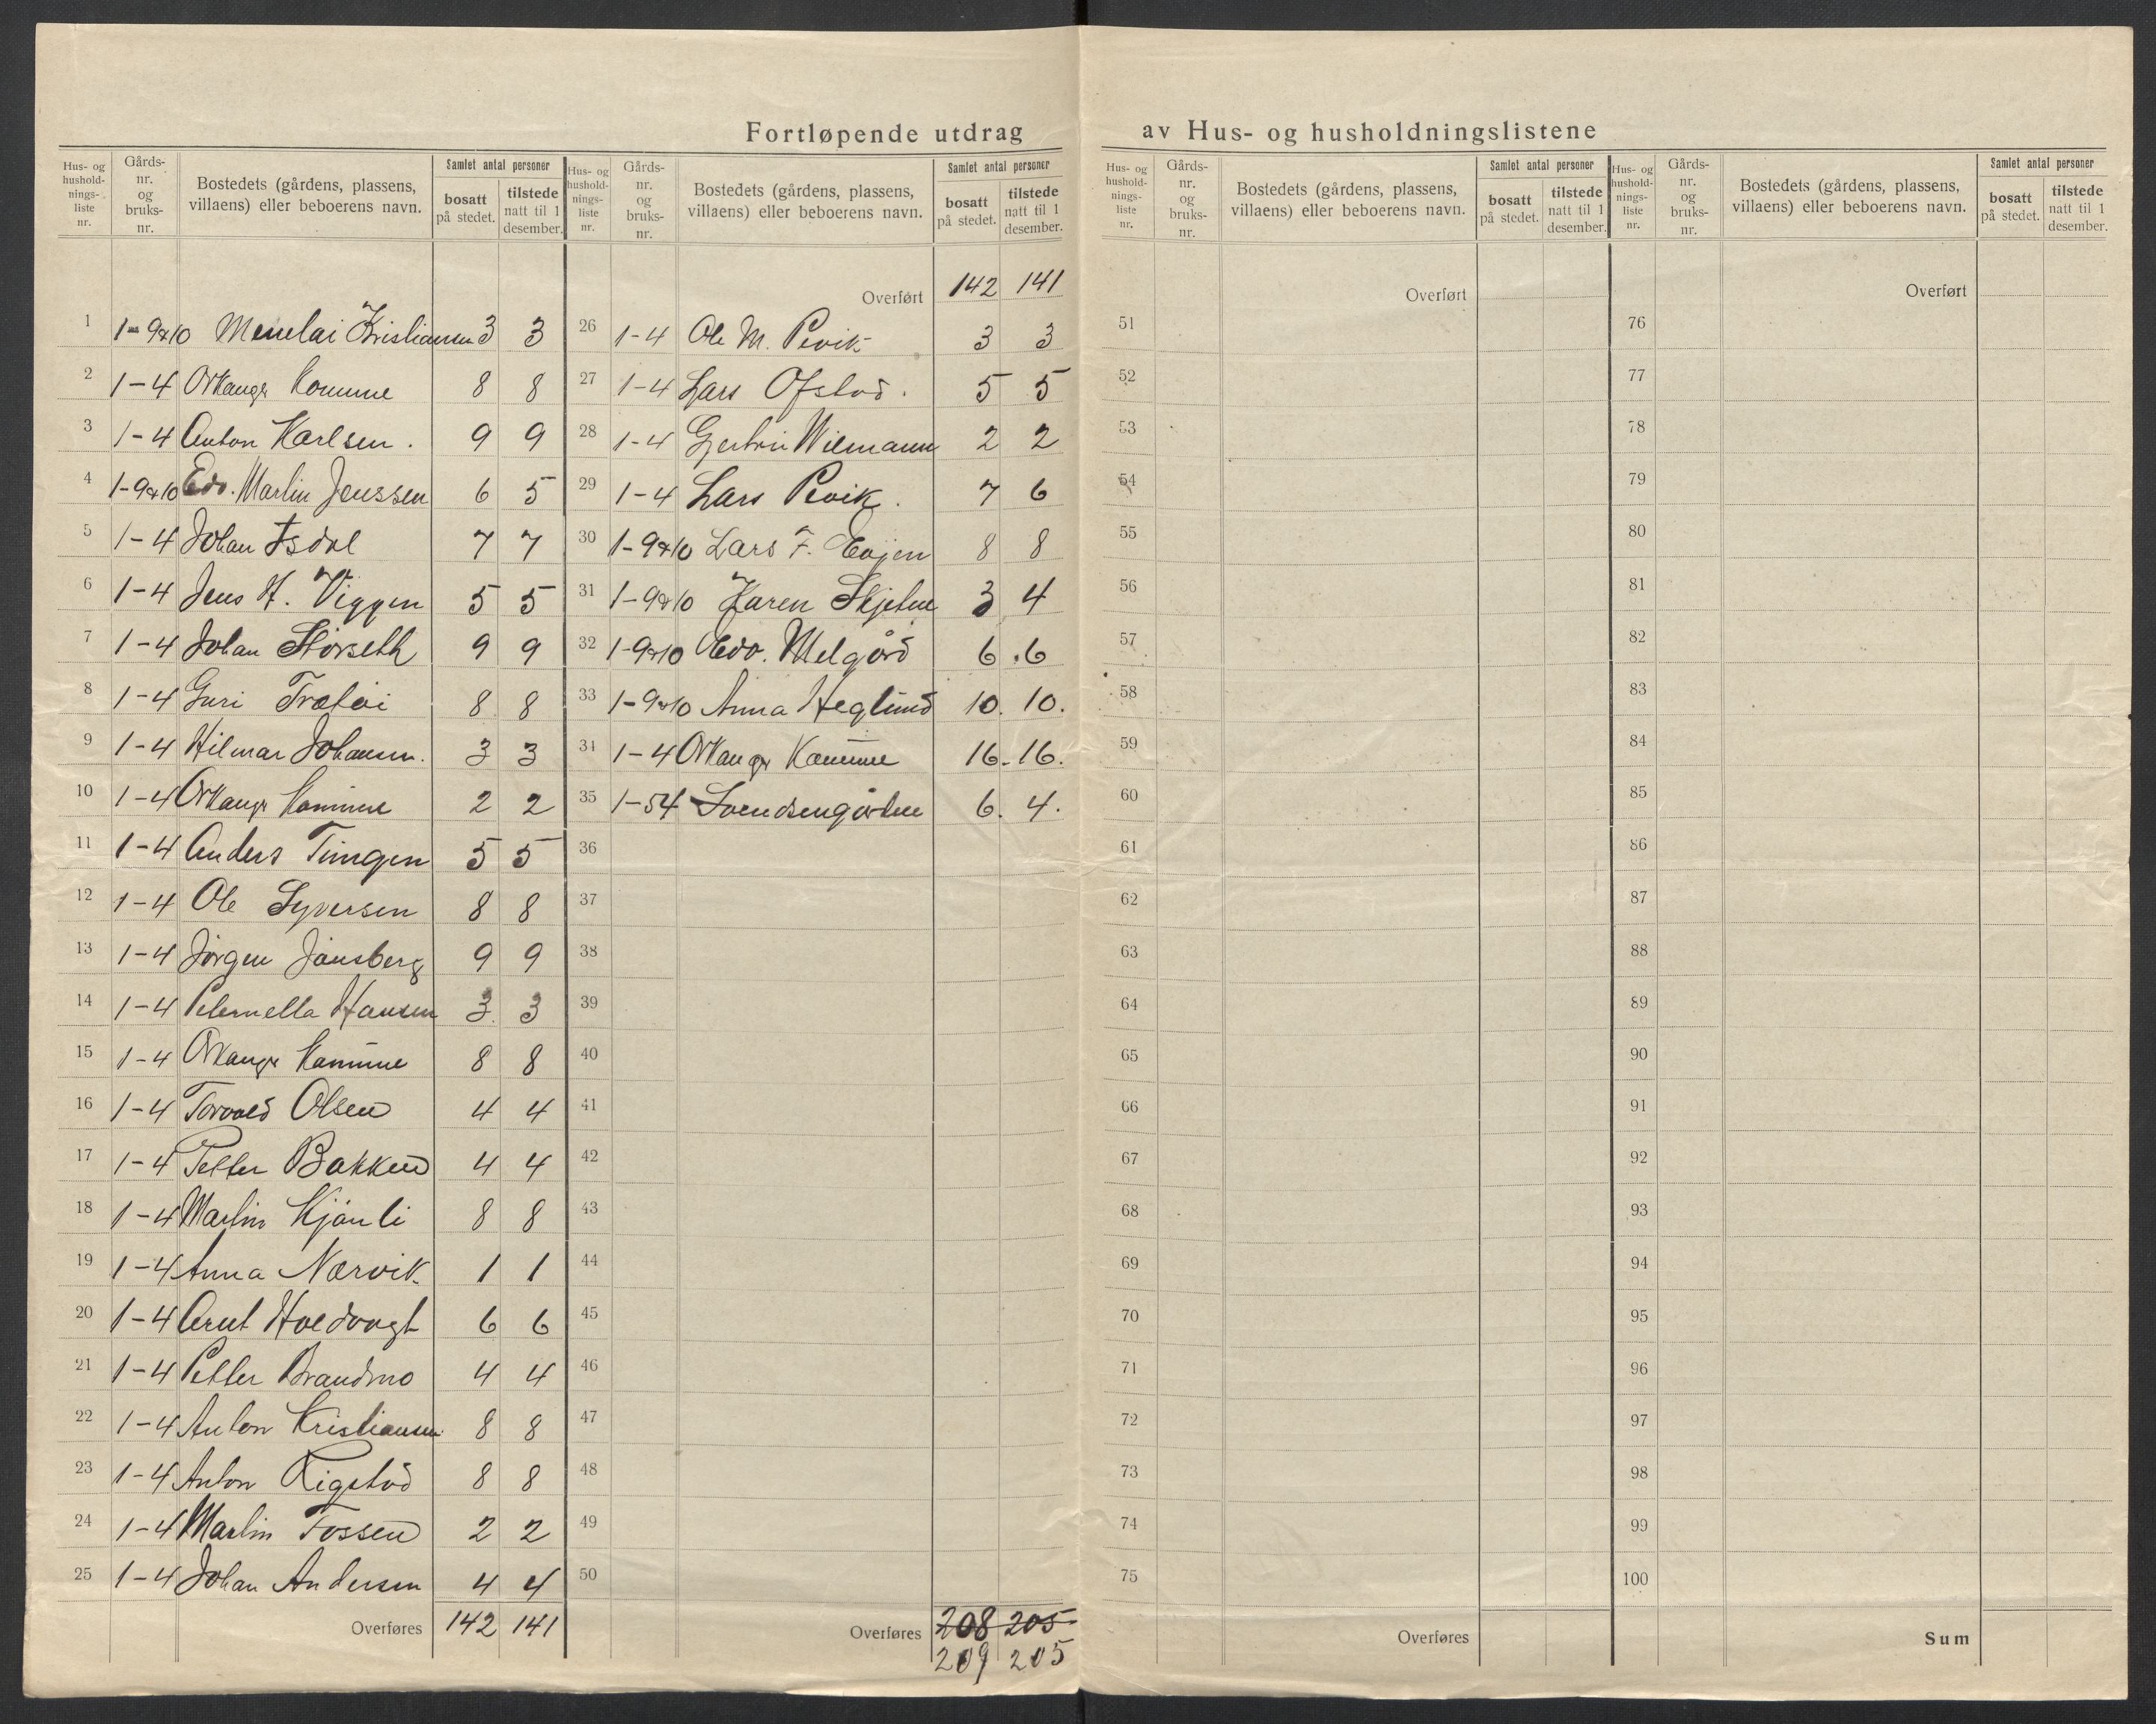 Fortløpende utdrag av Hus- og husholdningslistene
Hus- og husholdnings-liste nr. Gårds-nr. og bruks-nr. Bostedets (gårdens, plassens, villaens) eller beboerens navn. Samlet antal personer bosatt på stedet. tilstede natt til 1 desember.
1 1-9&10 Menelai Kristiansen 3 3
2 1-4 Orkanger Komune 8 8
3 1-4 Anton Karlsen. 9 9
4 1-9&10 Edv. Martin Jenssen 6 5
5 1-4 Johan Isdal 7 7
6 1-4 Jens H. Viggen 5 5
7 1-4 Johan Størseth 9 9
8 1-4 Guri 8 8
9 1-4 Hilmar Johansen. 3 3
10 1-4 Orkanger Kommune 2 2
11 1-4 Anders Tungen 5 5
12 1-4 Ole Syversen 8 8
13 1-4 Jørgen Jønsberg 9 9
14 1-4 Peternella Hansen 3 3
15 1-4 Orkanger Kommune 8 8
16 1-4 Torvald Olsen 4 4
17 1-4 Petter Bakken 4 4
18 1-4 Martin Kjønli 8 8
19 1-4 Anna Narvik 1 1
20 1-4 Arnt Holdvogt 6 6
21 1-4 Petter Brandmo 4 4
22 1-4 Anton Kristiansen 8 8
23 1-4 Anton Rigstad 8 8
24 1-4 Martin Fossen 2 2
25 1-4 Johan Andersen 4 4
Overføres 142 141
Hus- og husholdnings-liste nr. Gårds-nr. og bruks-nr. Bostedets (gårdens, plassens, villaens) eller beboerens navn. Samlet antal personer bosatt på stedet. tilstede natt til 1 desember.
Overført 142 141
26 1-4 Ole M. Pevik 3 3
27 1-4 Lars Ofstad. 5 5
28 1-4 Gjertrui Wiemann 2 2
29 1-4 Lars Pevik. 7 6
30 1-9&10 Lars F. Evjen 8 8
31 1-9&10 Karen Skjetne 3 4
32 1-9&10 Edv. Melgård 6 6
33 1-9&10 Anna Heglund 10. 10.
34 1-4 Orkanger Kommune 16. 16.
35 1-54 Svendsengården 6. 4.
36
37
38
39
40
41
42
43
44
45
46
47
48
49
50
Overføres 208 205
209 205
Hus- og husholdnings-liste nr. Gårds-nr. og bruks-nr. Bostedets (gårdens, plassens, villaens) eller beboerens navn. Samlet antal personer bosatt på stedet. tilstede natt til 1 desember.
Overført
51
52
53
54
55
56
57
58
59
60
61
62
63
64
65
66
67
68
69
70
71
72
73
74
75
Overføres
Hus- og husholdnings-liste nr. Gårds-nr. og bruks-nr. Bostedets (gårdens, plassens, villaens) eller beboerens navn. Samlet antal personer bosatt på stedet. tilstede natt til 1 desember.
Overført
76
77
78
79
80
81
82
83
84
85
86
87
88
89
90
91
92
93
94
95
96
97
98
99
100
Sum